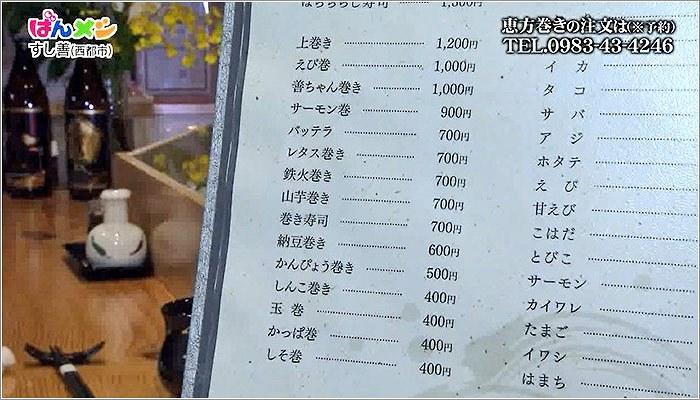 ばんメン
すし善(西都市)
恵方巻きの注文は(※予約)
TEL.0983-43-4246
ばらちらし寿司 1,500円
上巻き 1,200円
えび巻 1,000円
善ちゃん巻き 1,000円
サーモン巻 900円
バッテラ 700円
レタス巻き 700円
鉄火巻き 700円
山芋巻き 700円
巻き寿司 700円
納豆巻き 600円
かんぴょう巻き 500円
しんこ巻き 400円
玉巻 400円
かっぱ巻 400円
しそ巻 400円
イカ
タコ
サバ
アジ
ホタテ
えび
甘えび
こはだ
とびこ
サーモン
カイワレ
たまご
イワシ
はまち